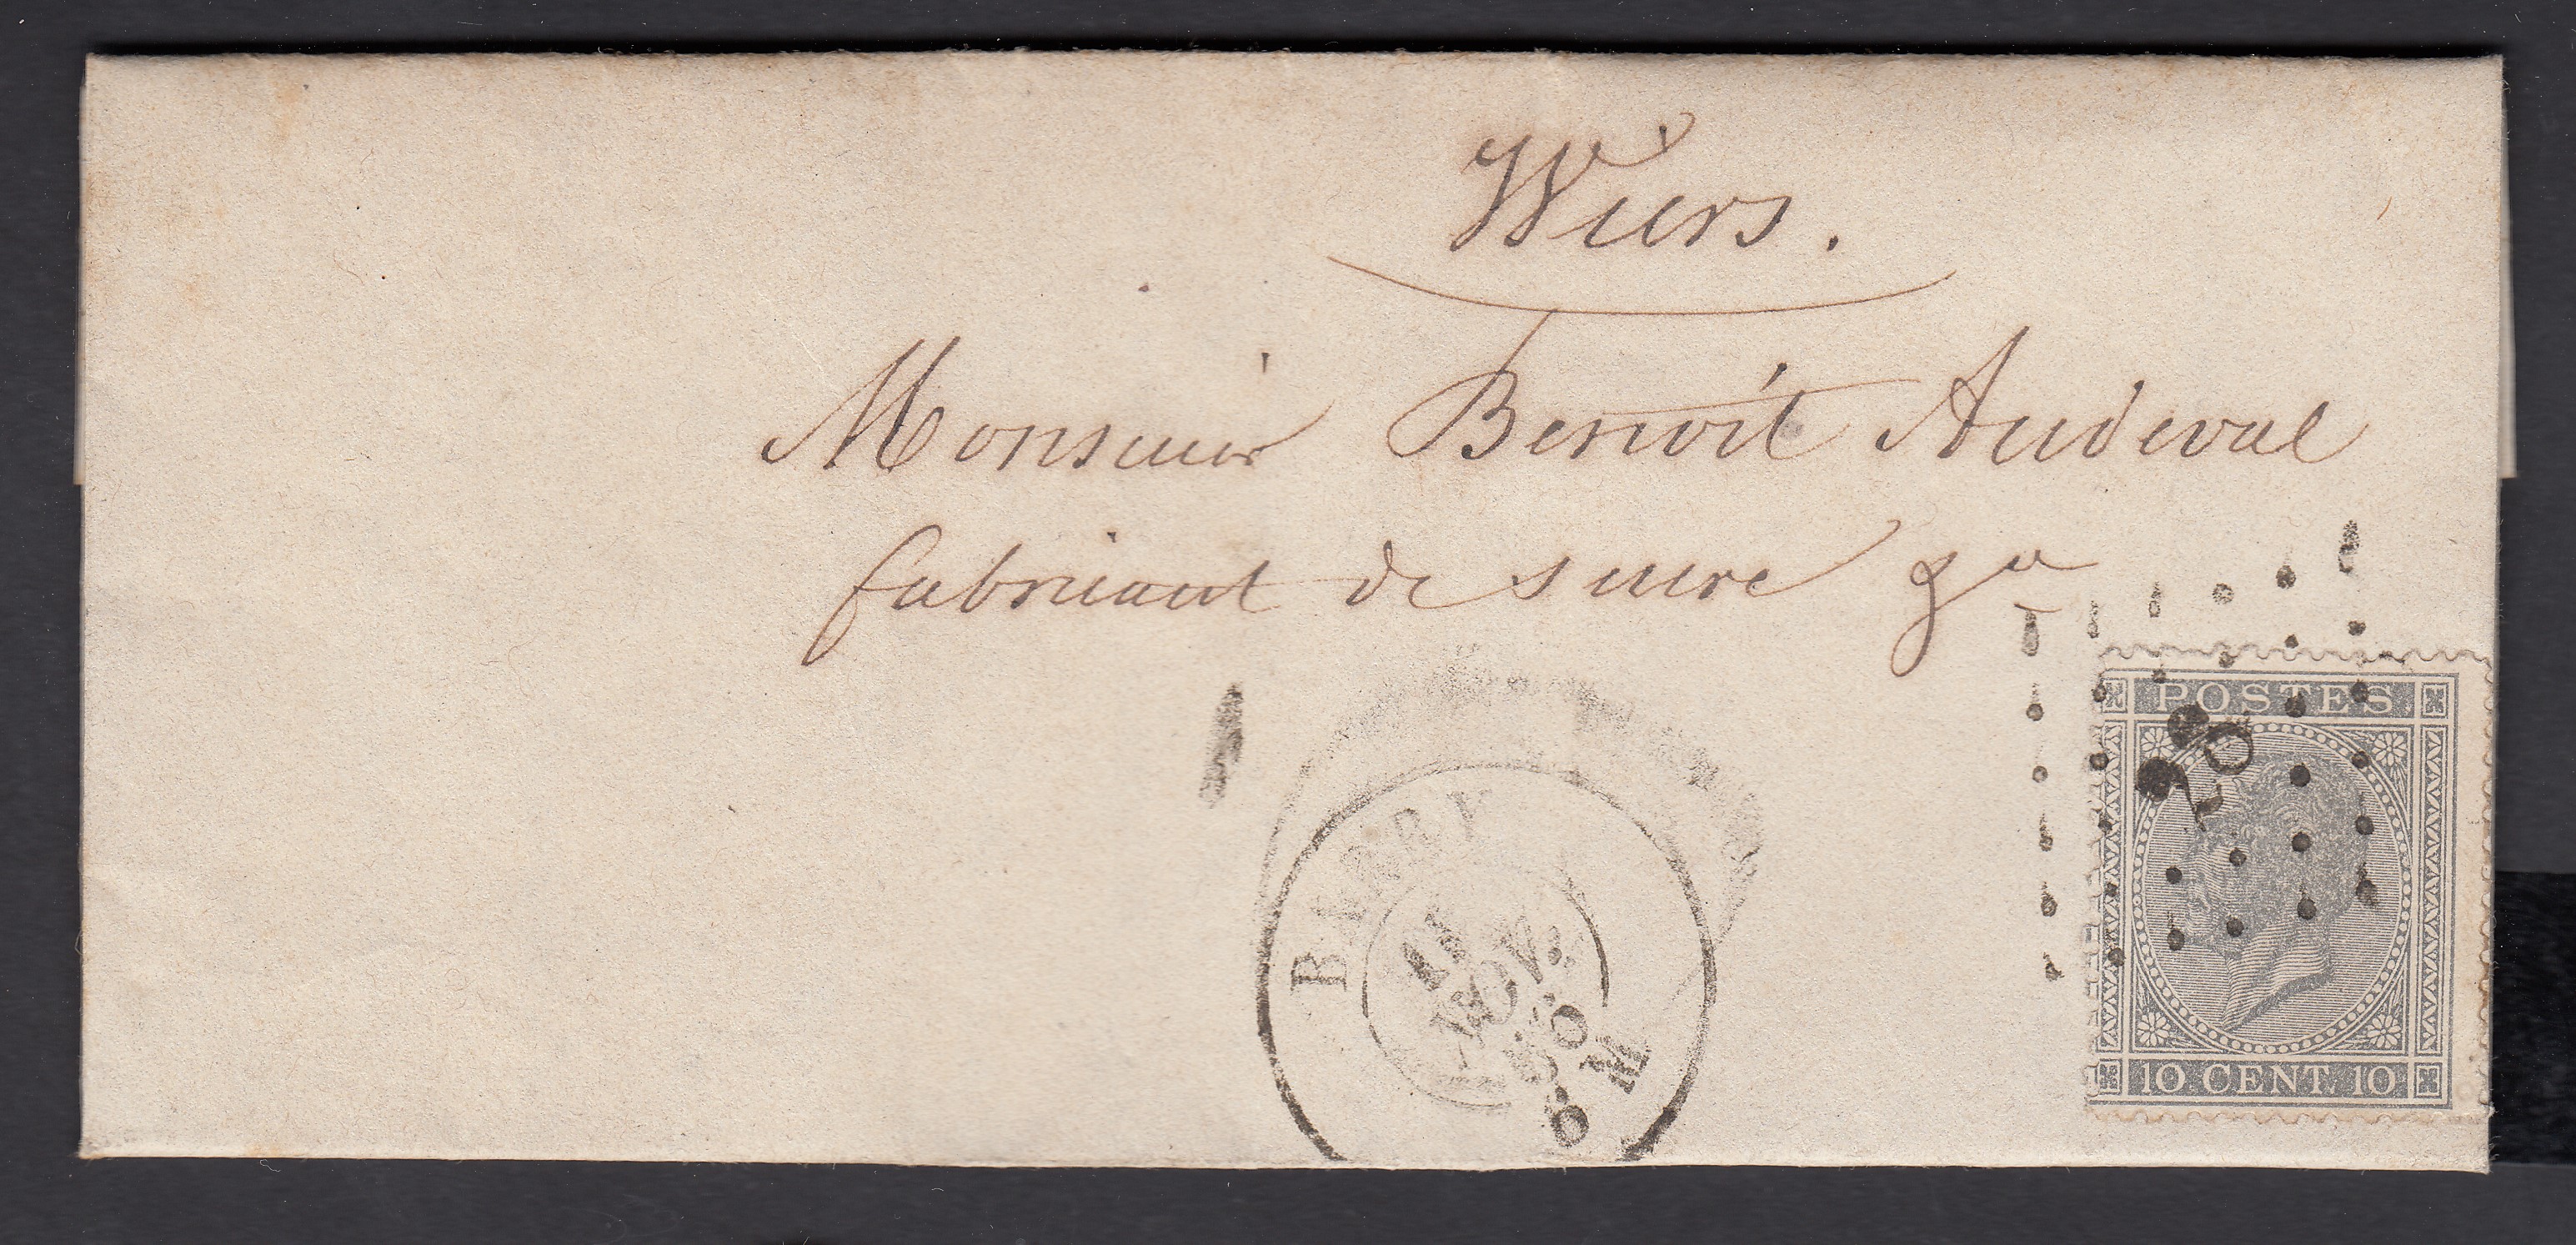 Wiers.
Monsieur Benoit Audeval
fabricant de sucre
BARRY
11
NOV.
6 M
POSTES
10 CENT. 10